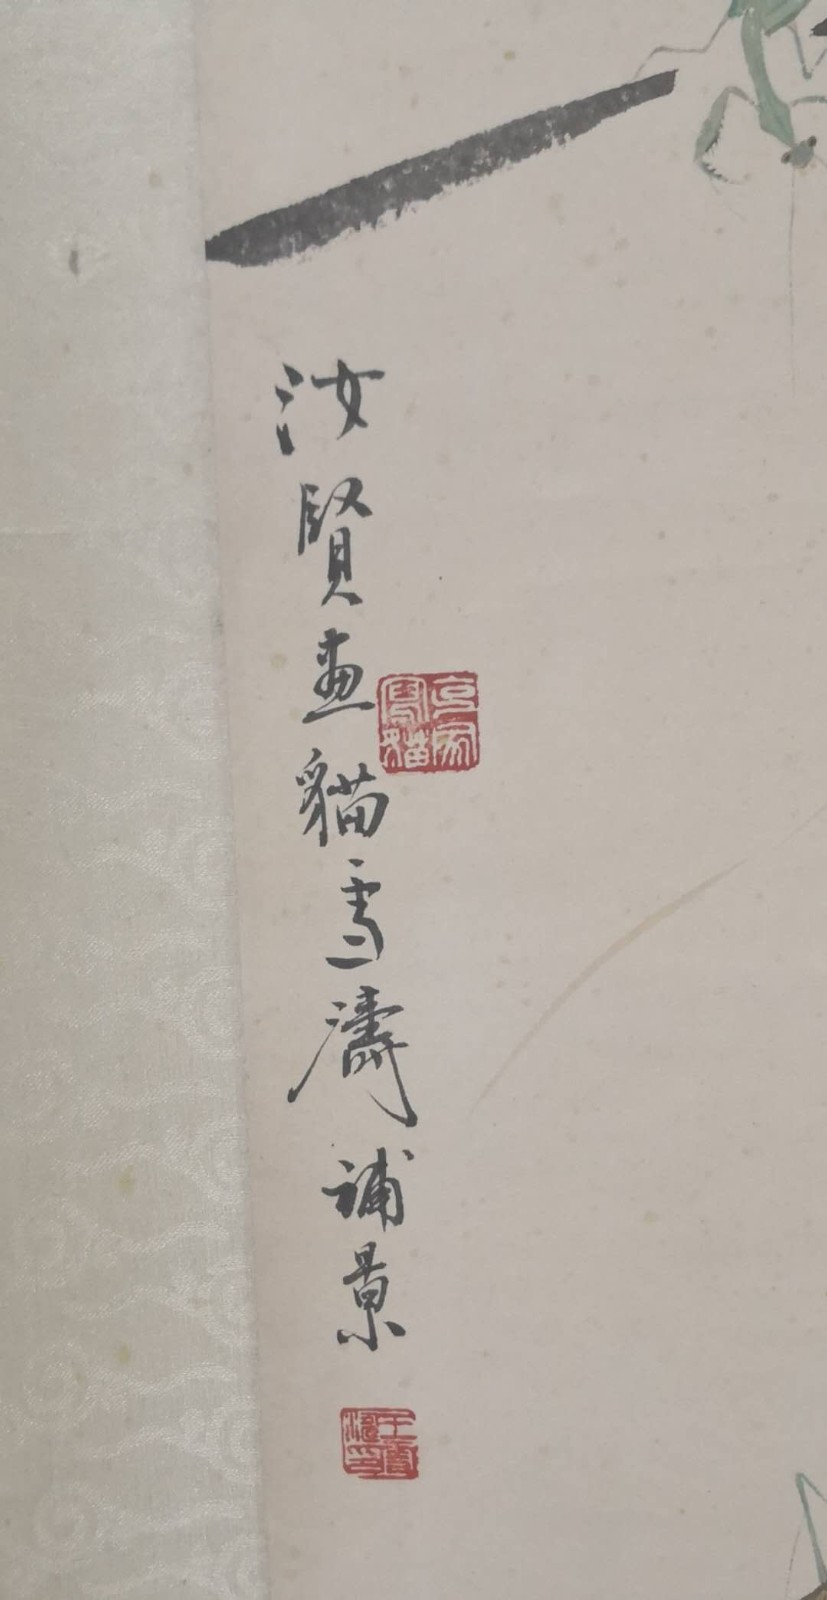 汝賢畫貓雪濤補景